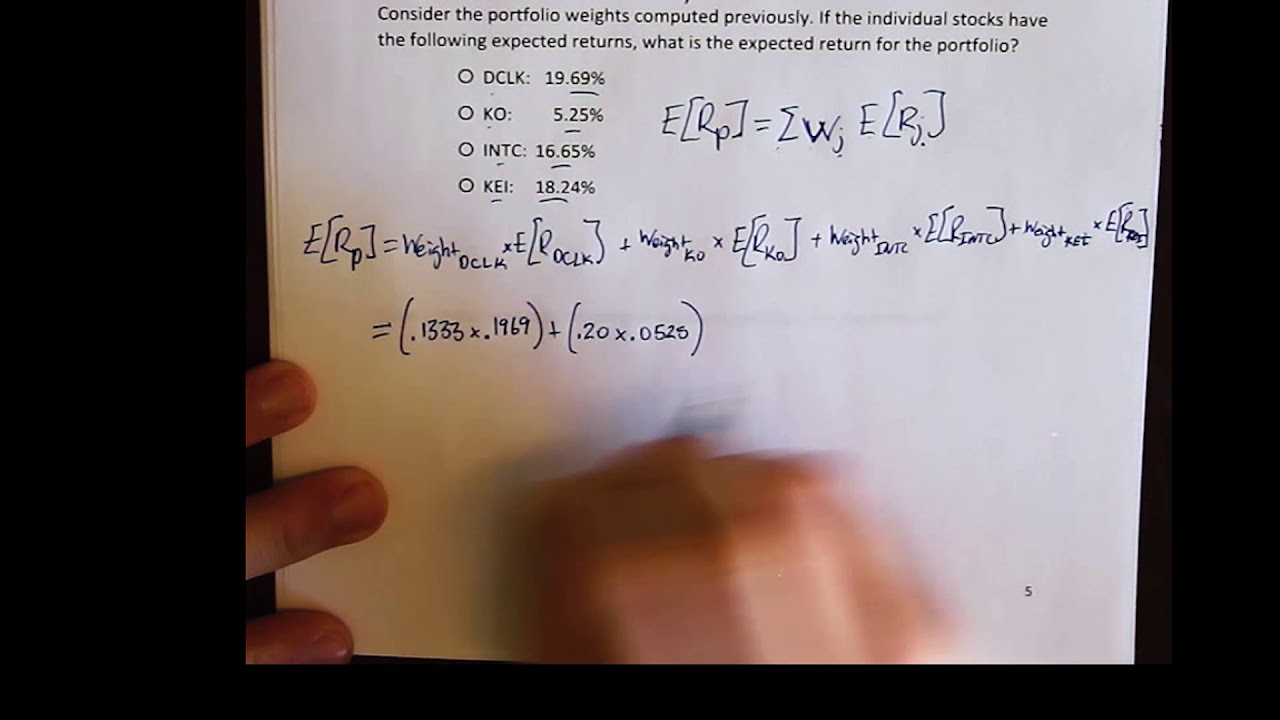 Consider the portfolio weights computed previously. If the individual stocks have
the following expected returns, what is the expected return for the portfolio?
○ DCLK: 19.69%
○ KO: 5.25%
○ INTC: 16.65%
○ KEI: 18.24%
E[Rp] = Σ Wj E[Rj]
E[Rp] = Weight DCLK × E[R DCLK] + Weight KO × E[R KO] + Weight INTC × E[R INTC] + Weight KEI × E[R KEI]
= (.1333 × .1969) + (.20 × .0525)
5